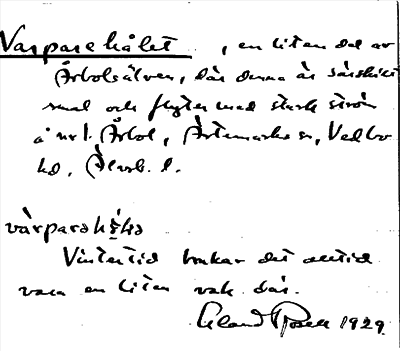 Varparehålet, en liten del av
Årbolsälven, där denna är särskilt
smal och flyter med stark ström
å nr 1. Årbol, Ärtemarks sn, Vedbo
hd, Älvsb. l.
vårparahł̣ḷa
Vintertid brukar det alltid
vara en liten vak där.
Eland Rosell 1929.